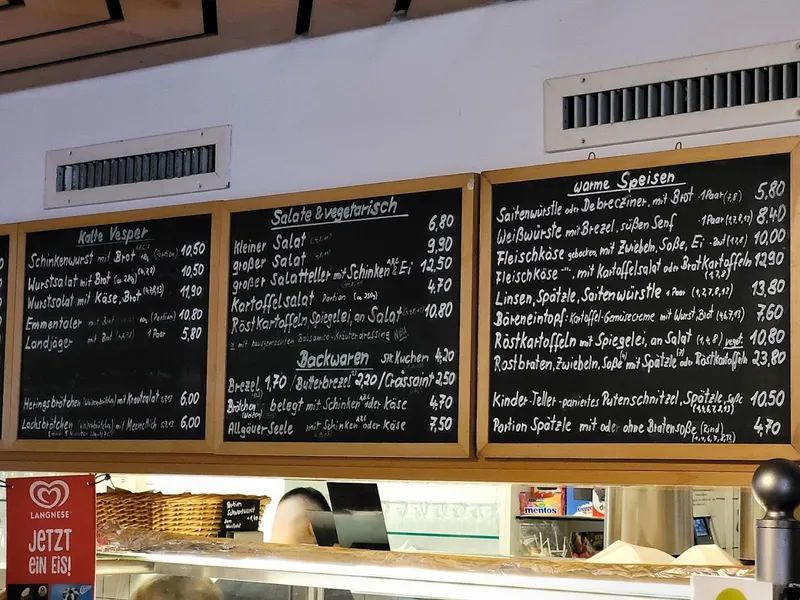 Kalte Vesper
Schinkenwurst mit Brot (Portion) 10,50
Wurstsalat mit Brot (ca 250g) 10,50
Wurstsalat mit Käse, Brot 11,90
Emmentaler mit Brot (Portion) 10,80
Landjäger mit Brot 1 Paar 5,80
Heringsbrötchen mit Krautsalat 6,00
Lachsbrötchen mit Meerrettich 6,00
Salate & vegetarisch
Kleiner Salat 6,80
großer Salat 9,90
großer Salatteller mit Schinken & Ei 12,50
Kartoffelsalat Portion (ca 250g) 4,70
Röstkartoffeln, Spiegelei, an Salat 10,80
mit hausgemachtem Balsamico-Kräuterdressing
Backwaren Stk Kuchen 4,20
Brezel 1,70 / Butterbrezel 2,20 / Crossaint 2,50
Brötchen belegt mit Schinken oder Käse 4,70
Allgäuer Seele mit Schinken oder Käse 7,50
warme Speisen
Saitenwürstle oder Debrecziner, mit Brot 1 Paar (7,8) 5,80
Weißwürste mit Brezel, süßen Senf 1 Paar 8,40
Fleischkäse gebacken, mit Zwiebeln, Soße, Ei - Brot 10,00
Fleischkäse -"-, mit Kartoffelsalat oder Bratkartoffeln 12,90
Linsen, Spätzle, Saitenwürstle 1 Paar (1,2,7,8,12) 13,80
Bäreneintopf: Kartoffel-Gemüsecreme mit Wurst, Brot 7,60
Röstkartoffeln mit Spiegelei, an Salat (1,4,8) veget. 10,80
Rostbraten, Zwiebeln, Soße mit Spätzle oder Röstkartoffeln 23,80
Kinder-Teller - paniertes Putenschnitzel, Spätzle, Soße 10,50
Portion Spätzle mit oder ohne Bratensoße (Rind) 4,70
LANGNESE
JETZT
EIN EIS!
Portion
mentos